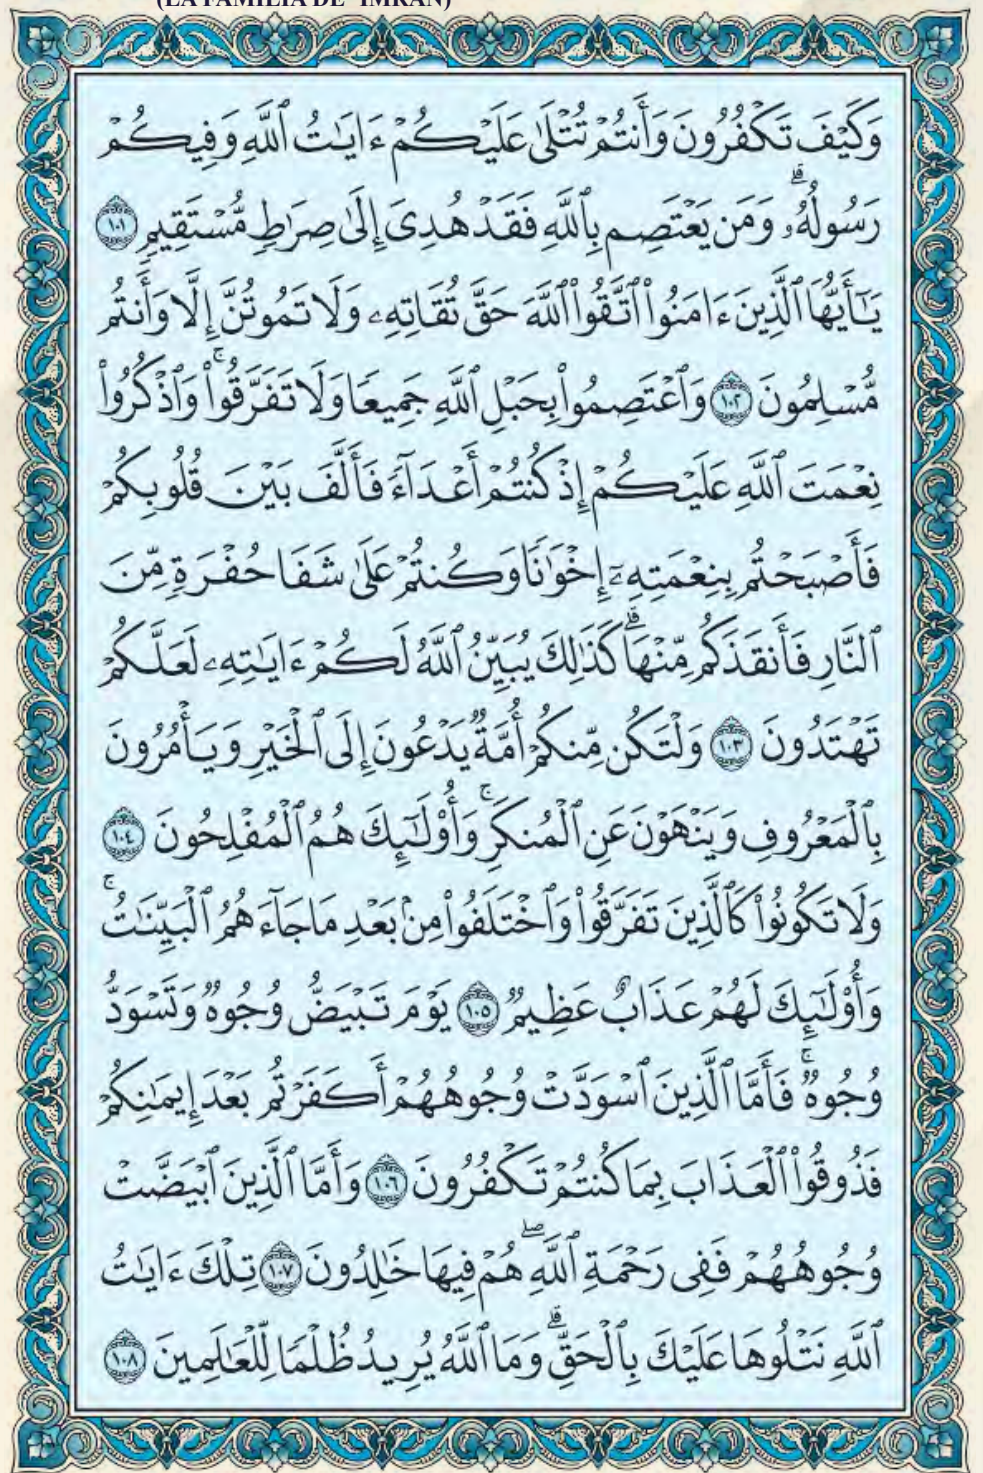 (LA FAMILIA DE ʿIMRÁN)
وَكَيْفَ تَكْفُرُونَ وَأَنتُمْ تُتْلَىٰ عَلَيْكُمْ ءَايَـٰتُ ٱللَّهِ وَفِيكُمْ
رَسُولُهُۥ ۗ وَمَن يَعْتَصِم بِٱللَّهِ فَقَدْ هُدِىَ إِلَىٰ صِرَٰطٍ مُّسْتَقِيمٍ ١٠١
يَـٰٓأَيُّهَا ٱلَّذِينَ ءَامَنُوا۟ ٱتَّقُوا۟ ٱللَّهَ حَقَّ تُقَاتِهِۦ وَلَا تَمُوتُنَّ إِلَّا وَأَنتُم
مُّسْلِمُونَ ١٠٢ وَٱعْتَصِمُوا۟ بِحَبْلِ ٱللَّهِ جَمِيعًا وَلَا تَفَرَّقُوا۟ ۚ وَٱذْكُرُوا۟
نِعْمَتَ ٱللَّهِ عَلَيْكُمْ إِذْ كُنتُمْ أَعْدَآءً فَأَلَّفَ بَيْنَ قُلُوبِكُمْ
فَأَصْبَحْتُم بِنِعْمَتِهِۦٓ إِخْوَٰنًا وَكُنتُمْ عَلَىٰ شَفَا حُفْرَةٍ مِّنَ
ٱلنَّارِ فَأَنقَذَكُم مِّنْهَا ۗ كَذَٰلِكَ يُبَيِّنُ ٱللَّهُ لَكُمْ ءَايَـٰتِهِۦ لَعَلَّكُمْ
تَهْتَدُونَ ١٠٣ وَلْتَكُن مِّنكُمْ أُمَّةٌ يَدْعُونَ إِلَى ٱلْخَيْرِ وَيَأْمُرُونَ
بِٱلْمَعْرُوفِ وَيَنْهَوْنَ عَنِ ٱلْمُنكَرِ ۚ وَأُو۟لَـٰٓئِكَ هُمُ ٱلْمُفْلِحُونَ ١٠٤
وَلَا تَكُونُوا۟ كَٱلَّذِينَ تَفَرَّقُوا۟ وَٱخْتَلَفُوا۟ مِنۢ بَعْدِ مَا جَآءَهُمُ ٱلْبَيِّنَـٰتُ ۚ
وَأُو۟لَـٰٓئِكَ لَهُمْ عَذَابٌ عَظِيمٌ ١٠٥ يَوْمَ تَبْيَضُّ وُجُوهٌ وَتَسْوَدُّ
وُجُوهٌ ۚ فَأَمَّا ٱلَّذِينَ ٱسْوَدَّتْ وُجُوهُهُمْ أَكَفَرْتُم بَعْدَ إِيمَـٰنِكُمْ
فَذُوقُوا۟ ٱلْعَذَابَ بِمَا كُنتُمْ تَكْفُرُونَ ١٠٦ وَأَمَّا ٱلَّذِينَ ٱبْيَضَّتْ
وُجُوهُهُمْ فَفِى رَحْمَةِ ٱللَّهِ ۖ هُمْ فِيهَا خَـٰلِدُونَ ١٠٧ تِلْكَ ءَايَـٰتُ
ٱللَّهِ نَتْلُوهَا عَلَيْكَ بِٱلْحَقِّ ۗ وَمَا ٱللَّهُ يُرِيدُ ظُلْمًا لِّلْعَـٰلَمِينَ ١٠٨